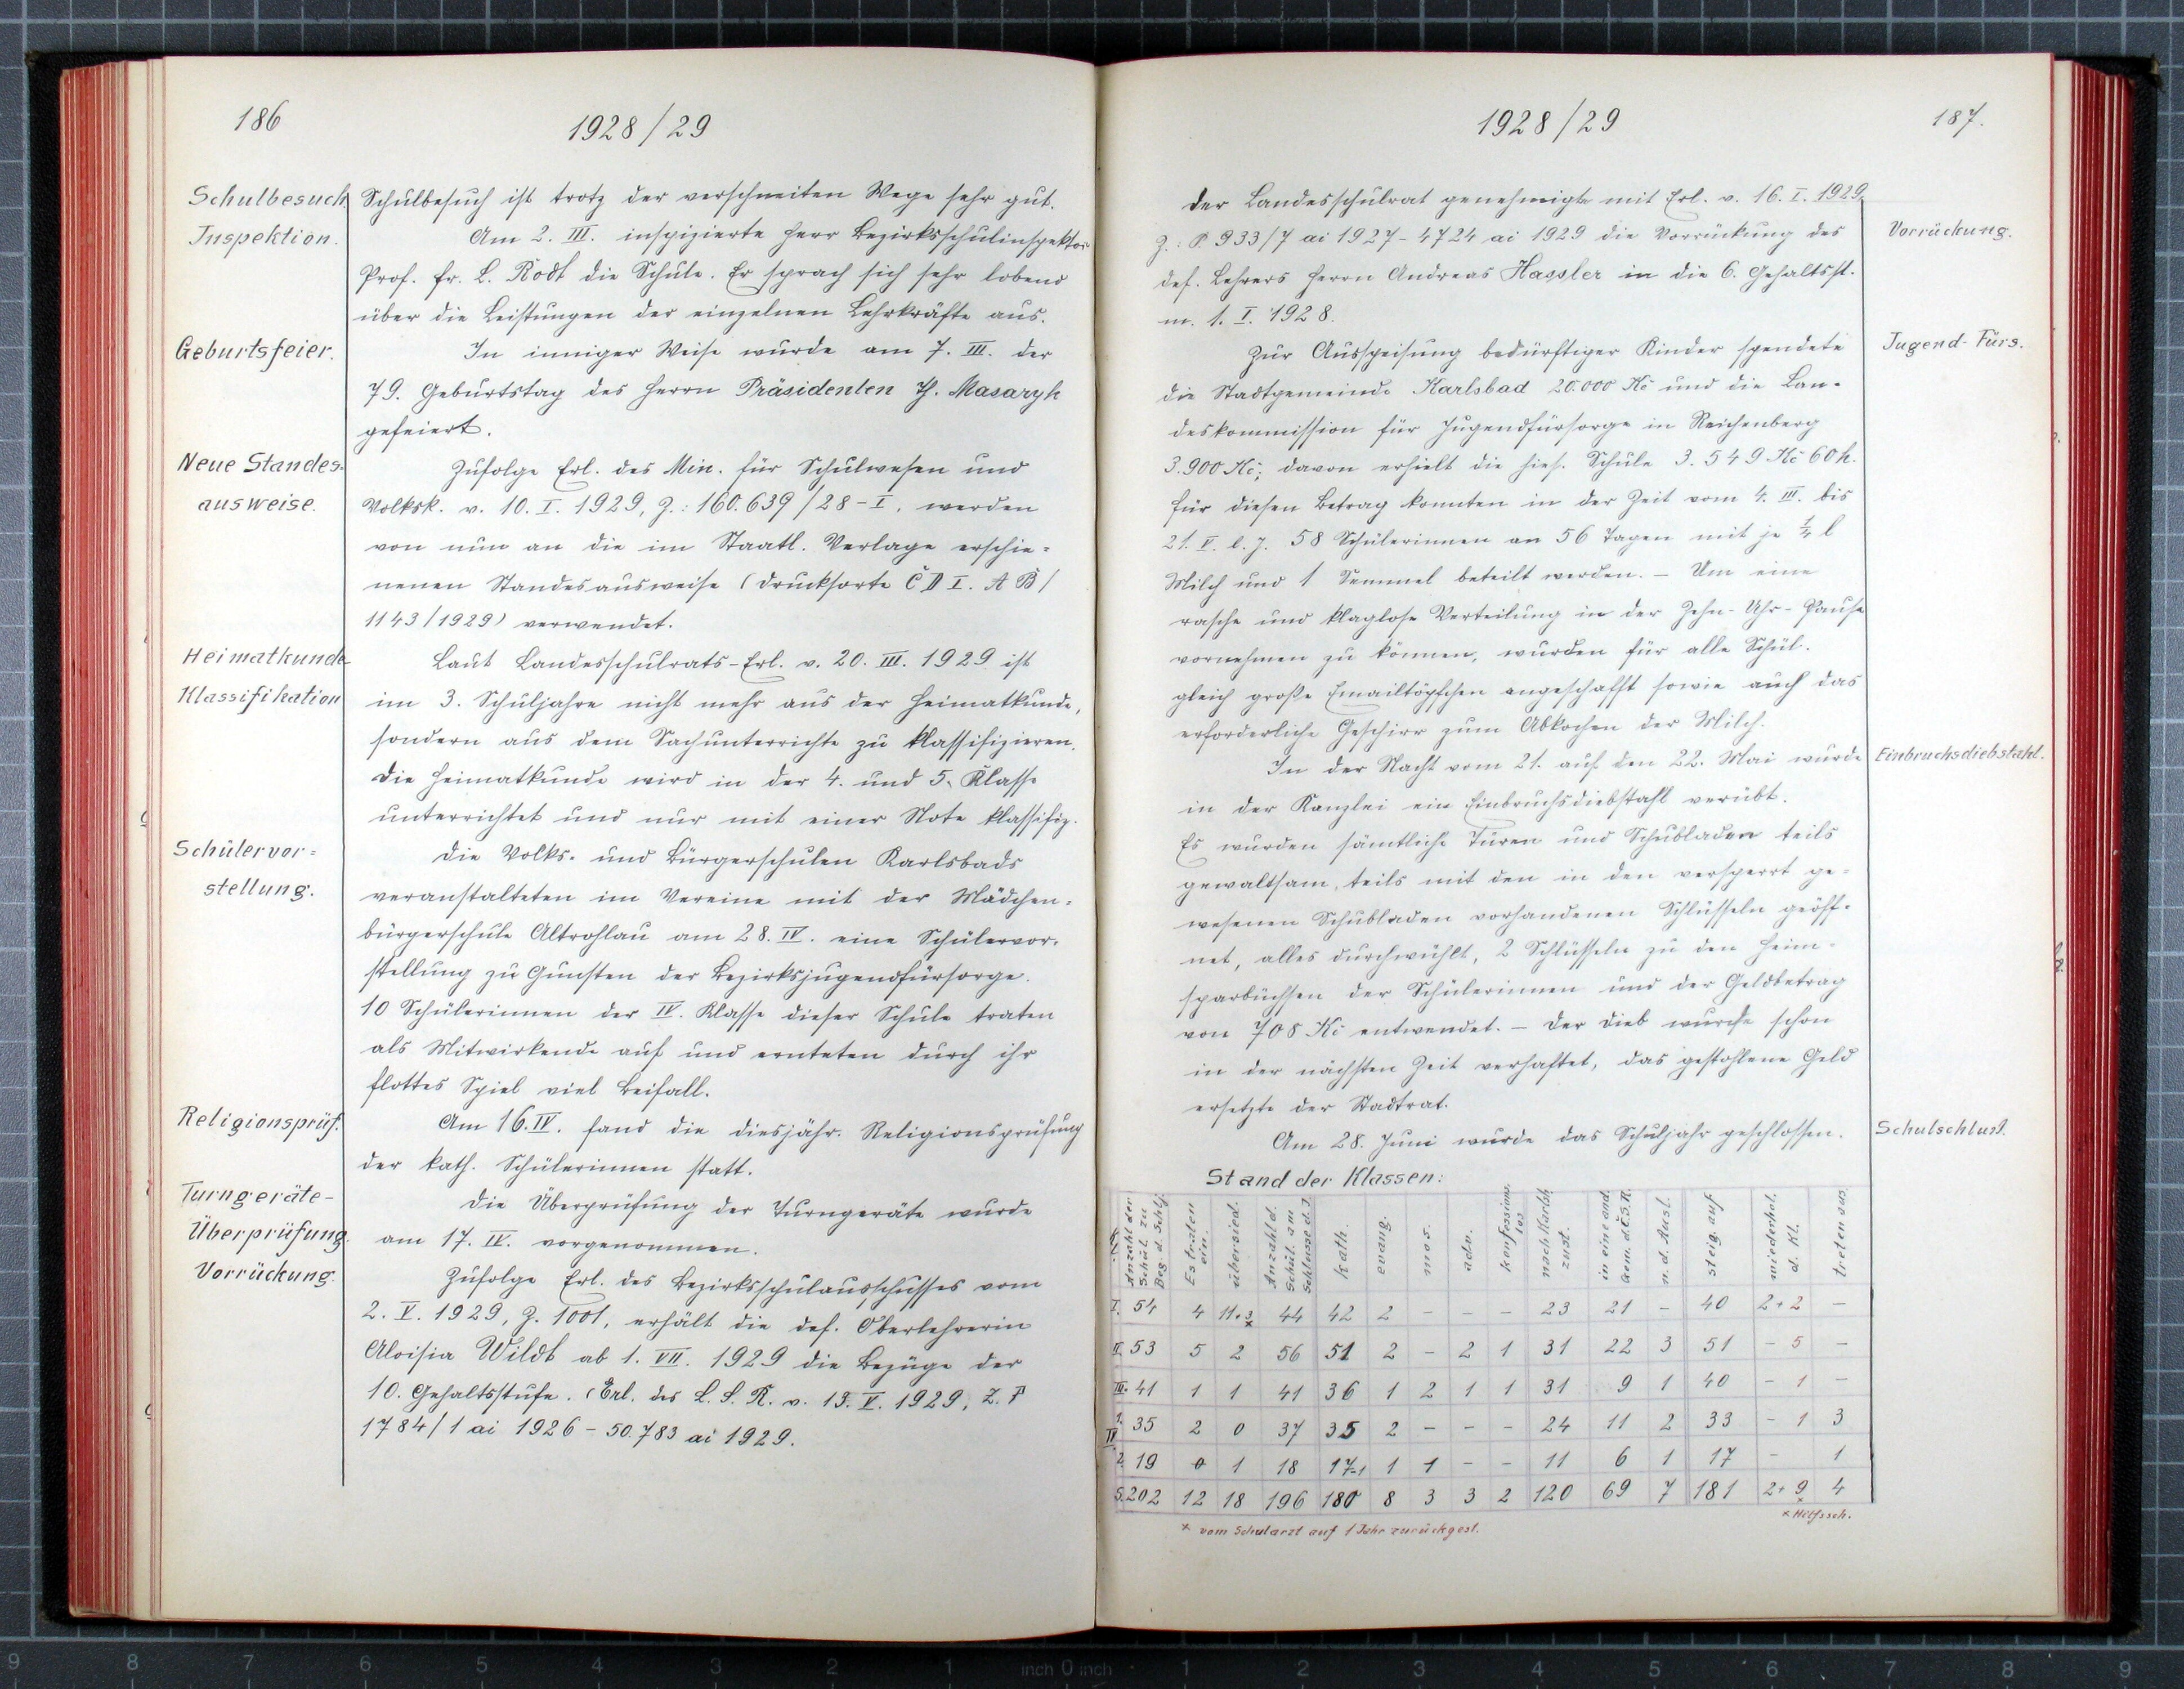 186
1928/29
Schulbesuch Schulbesuch ist trotz der verschneiten Wege sehr gut.
Inspektion. Am 2. III. inspizierte Herr Bezirksschulinspektor
Prof. Fr. L. Rodt die Schule. Er sprach sich sehr lobend
über die Leistungen der einzelnen Lehrkräfte aus.
Geburtsfeier. In inniger Weise wurde am 7. III. der
79. Geburtstag des Herrn Präsidenten Th. Masaryk
gefeiert.
Neue Standes- Zufolge Erl. des Min. für Schulwesen und
ausweise. Volksk. v. 10. I. 1929, Z.: 160.639/28-I, werden
von nun an die im Staatl. Verlage erschie=
nenen Standesausweise (Drucksorte Č D I. A B/
1143/1929) verwendet.
Heimatkunde- Laut Landesschulrats-Erl. v. 20. III. 1929 ist
Klassifikation im 3. Schuljahre nicht mehr aus der Heimatkunde,
sondern aus dem Sachunterrichte zu klassifizieren.
Die Heimatkunde wird in der 4. und 5. Klasse
unterrichtet und nur mit einer Note klassifiz.
Schülervor= Die Volks- und Bürgerschulen Karlsbads
stellung. veranstalteten im Vereine mit der Mädchen=
bürgerschule Altrohlau am 28. IV. eine Schülervor=
stellung zu Gunsten der Bezirksjugendfürsorge.
10 Schülerinnen der IV. Klasse dieser Schule traten
als Mitwirkende auf und ernteten durch ihr
flottes Spiel viel Beifall.
Religionsprüf. Am 16. IV. fand die diesjähr. Religionsprüfung
der kath. Schülerinnen statt.
Turngeräte- Die Überprüfung der Turngeräte wurde
Überprüfung. am 17. IV. vorgenommen.
Vorrückung. Zufolge Erl. des Bezirksschulausschusses vom
2. V. 1929, Z. 1001, erhält die def. Oberlehrerin
Aloisia Wildt ab 1. VII. 1929 die Bezüge der
10. Gehaltsstufe. (Erl. des L. S. R. v. 13. V. 1929, Z. P
1784/1 ai 1926 - 50.783 ai 1929.
1928/29
187.
Der Landesschulrat genehmigte mit Erl. v. 16. I. 1929,
Z.: P. 933/7 ai 1927 - 4724 ai 1929 die Vorrückung des Vorrückung.
def. Lehrers Herrn Andreas Hassler in die 6. Gehaltsst.
m. 1. I. 1928.
Zur Ausspeisung bedürftiger Kinder spendete Jugend-Fürs.
die Stadtgemeinde Karlsbad 20.000 Kč und die Lan=
deskommission für Jugendfürsorge in Reichenberg
3.900 Kč; davon erhielt die hies. Schule 3.549 Kč 60 h.
Für diesen Betrag konnten in der Zeit vom 4. III. bis
21. V. l. J. 58 Schülerinnen an 56 Tagen mit je ¼ l
Milch und 1 Semmel beteilt werden. - Um eine
rasche und klaglose Verteilung in der Zehn-Uhr-Pause
vornehmen zu können, wurden für alle Schül.
gleich große Emailtöpfchen angeschafft sowie auch das
erforderliche Geschirr zum Abkochen der Milch.
In der Nacht vom 21. auf den 22. Mai wurde Einbruchsdiebstahl.
in der Kanzlei ein Einbruchsdiebstahl verübt.
Es wurden sämtliche Türen und Schubladen teils
gewaltsam, teils mit den in den versperrt ge=
wesenen Schubladen vorhandenen Schlüsseln geöff=
net, alles durchwühlt, 2 Schlüsseln zu den Heim=
sparbüchsen der Schülerinnen und der Geldbetrag
von 708 Kč entwendet. - Der Dieb wurde schon
in der nächsten Zeit verhaftet, das gestohlene Geld
ersetzte der Stadtrat.
Am 28. Juni wurde das Schuljahr geschlossen. Schulschluß.
Stand der Klassen:
Anzahl der Schül. zu Beg. d. Schlj. Es traten ein. übersied. Anzahl d. Schül. am Schlusse d. J. kath. evang. mos. adv. konfessions. los nach Karlsb. zust. in eine and. Gem. d. Č.S.R. n. d. Ausl. steig. auf wiederhol. d. Kl. treten aus
I. 54 4 11+3 x 44 42 2 - - - 23 21 - 40 2+2 -
II. 53 5 2 56 51 2 - 2 1 31 22 3 51 - 5 -
III. 41 1 1 41 36 1 2 1 1 31 9 1 40 - 1 -
IV 1. 35 2 0 37 35 2 - - - 24 11 2 33 - 1 3
2. 19 0 1 18 17-1 1 1 - - 11 6 1 17 - 1
S. 202 12 18 196 180 8 3 3 2 120 69 7 181 2+9 x 4
x vom Schularzt auf 1 Jahr zurückgest.
x Hilfssch.